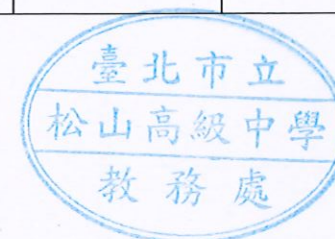 臺北市立
松山高級中學
教務處